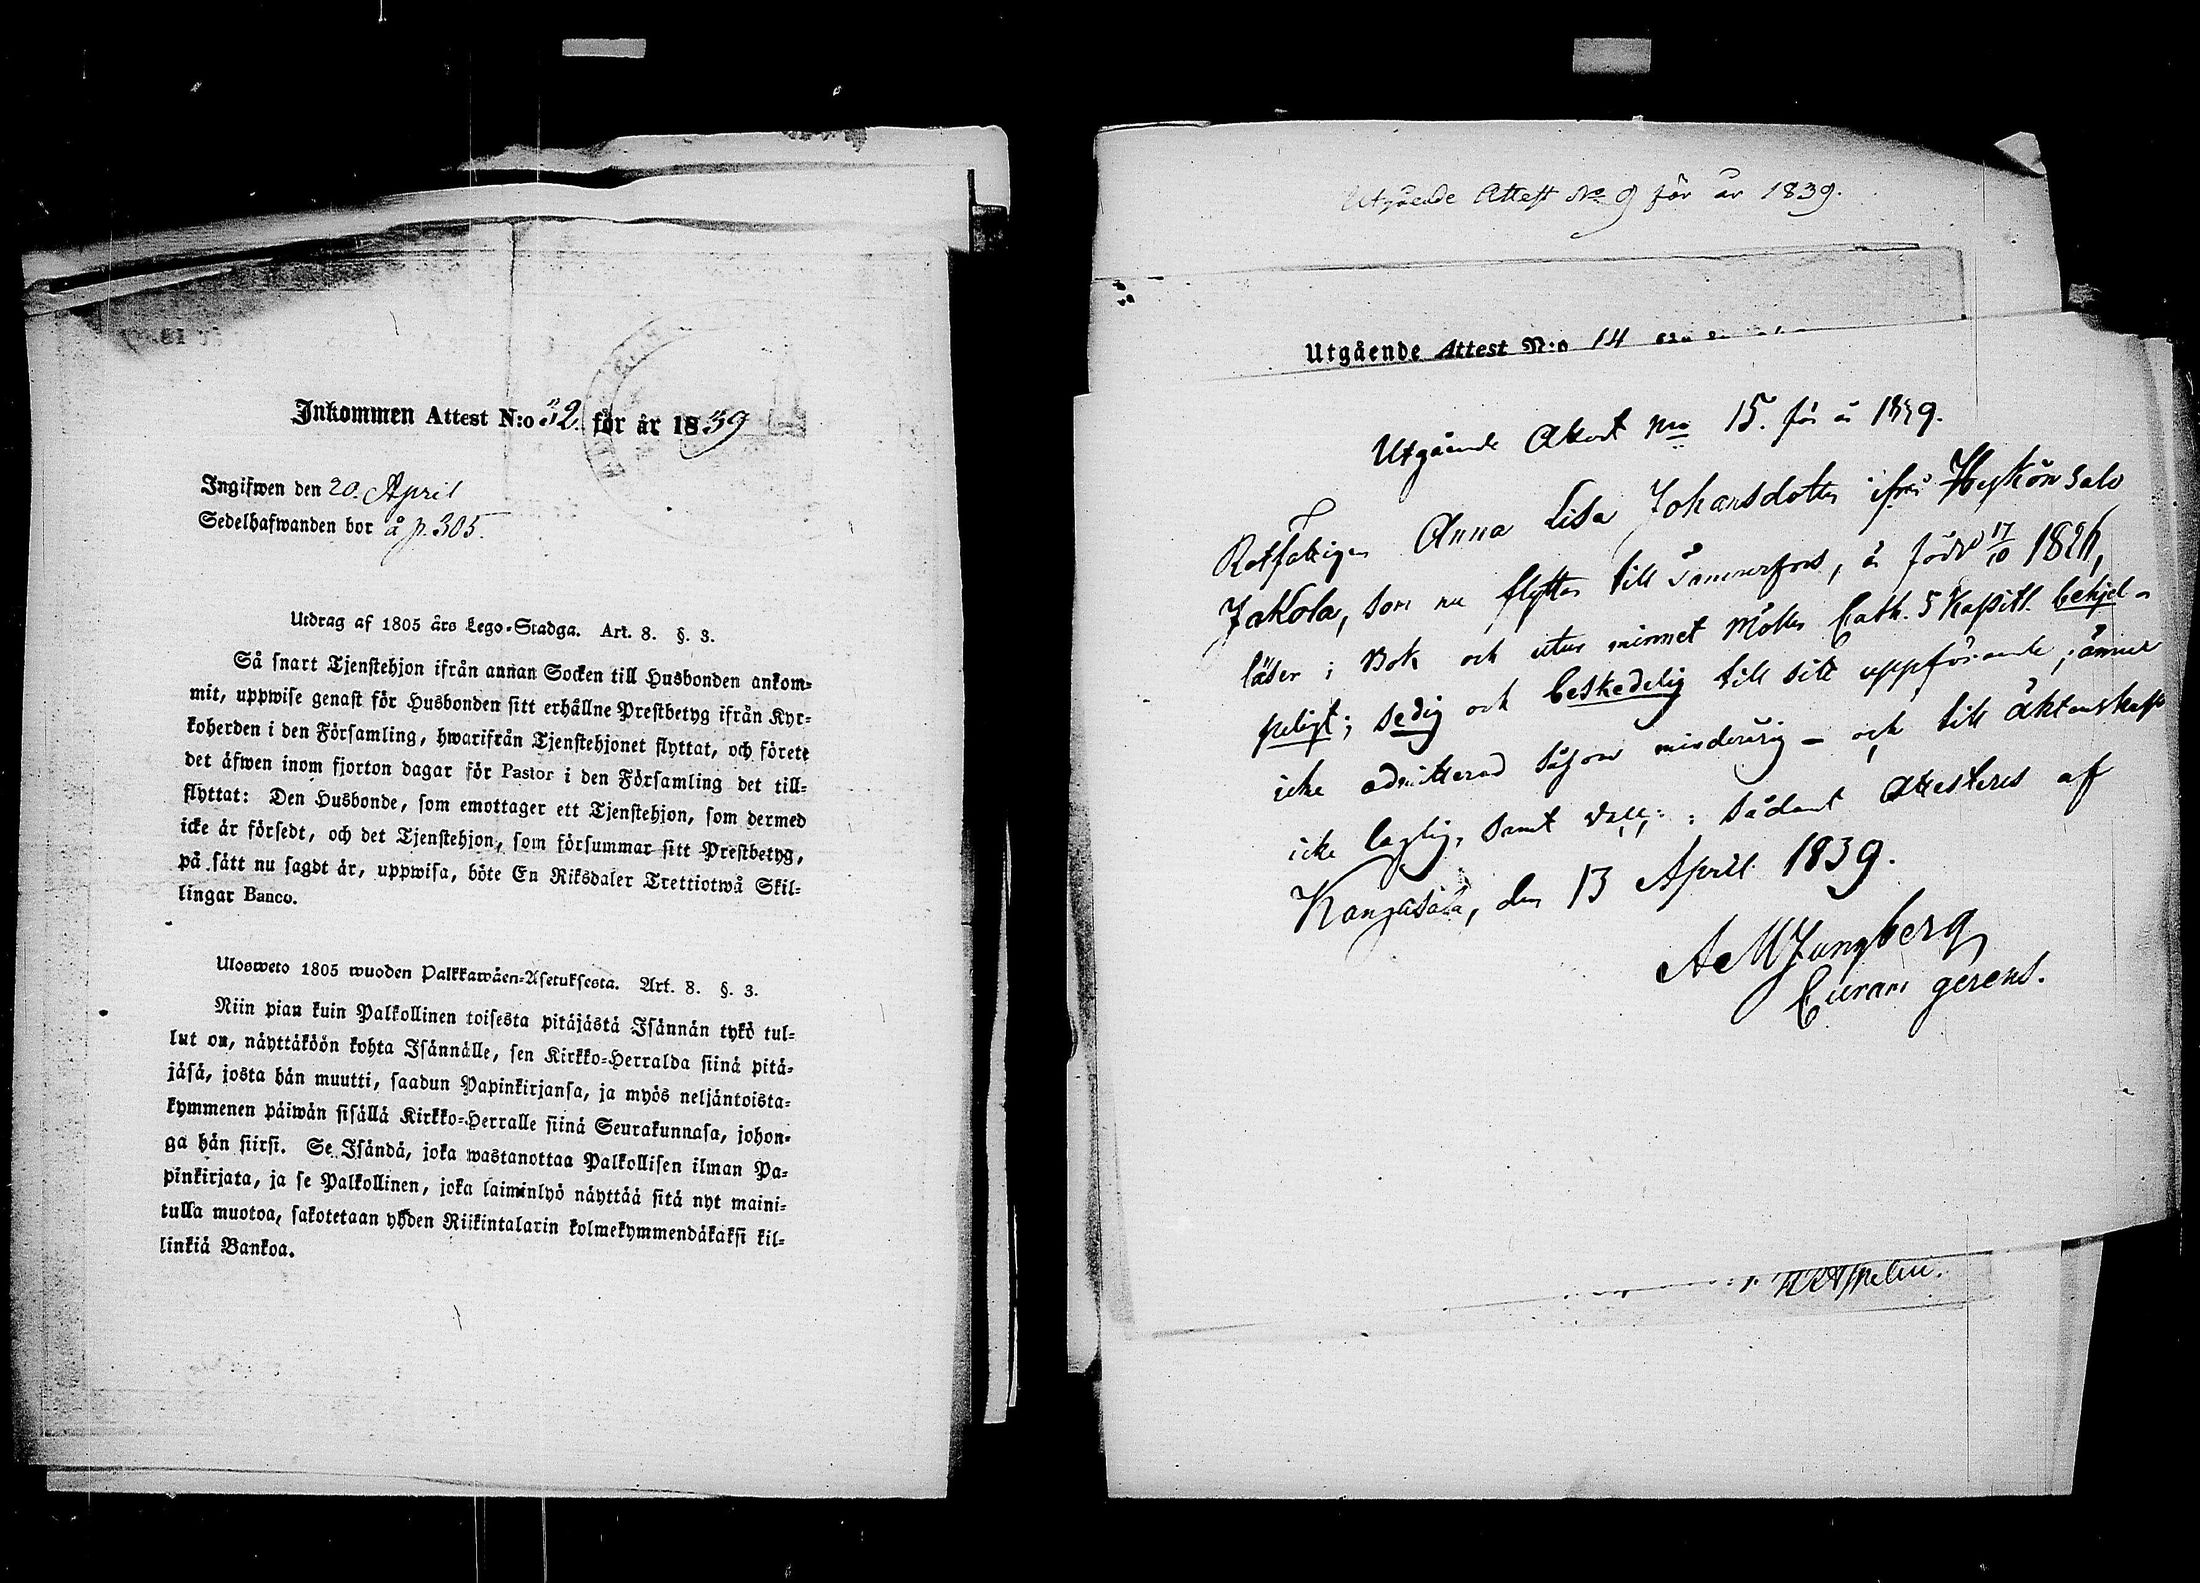 Inkommen Attest N:o 32. för år 1839
Ingifwen den 20. April
Sedelhafwanden bor å p. 305.
Utdrag af 1805 års Lego-Stadga. Art. 8. §. 3.
Så snart Tjenstehjon ifrån annan Socken till Husbonden ankom-
mit, uppwise genast för Husbonden sitt erhållne Prestbetyg ifrån Kyr-
koherden i den Församling, hwarifrån Tjenstehjonet flyttat, och förete
det äfwen inom fjorton dagar för Pastor i den Församling det till-
flyttat: Den Husbonde, som emottager ett Tjenstehjon, som dermed
icke är försedt, och det Tjenstehjon, som försummar sitt Prestbetyg,
på sätt nu sagdt är, uppwisa, böte En Riksdaler Trettiotwå Skil-
lingar Banco.
Ulosweto 1805 wuoden Palkkawäen-Asetuksesta. Art. 8. §. 3.
Niin pian kuin Palkollinen toisesta pitäjästä Isännän tykö tul-
lut on, näyttäköön kohta Isännälle, sen Kirkko-Herralda siinä pitä-
jäsä, josta hän muutti, saadun Papinkirjansa, ja myös neljäntoista-
kymmenen päiwän sisällä Kirkko-Herralle siinä Seurakunnasa, johon-
ga hän siirsi. Se Isändä, joka wastanottaa Palkollisen ilman Pa-
pinkirjata, ja se Palkollinen, joka laiminlyö näyttää sitä nyt maini-
tulla muotoa, sakotetaan yhden Riikintalarin kolmekymmendäkaksi kil-
linkiä Bankoa.
Utgående Attest No 9 för år 1839.
Utgående Attest N:o 14
Utgående Attest Nro 15. för år 1839.
Rotfattigen Anna Lisa Johansdotter ifrån salo
Jakola, som nu flyttar till Tammerfors, är född 17/10 1826,
läser i Bok och utur minnet Möllers Cath. 5 Kapitl. behjel-
peligt; sedig och beskedelig till sitt uppförande; ännu
icke admitterad såsom minderårig – och till äktenskap
icke laglig, samt vacc: : Sådant Attesteres af
Kangasala, den 13 April 1839.
A M Ljungberg
Curam gerens.